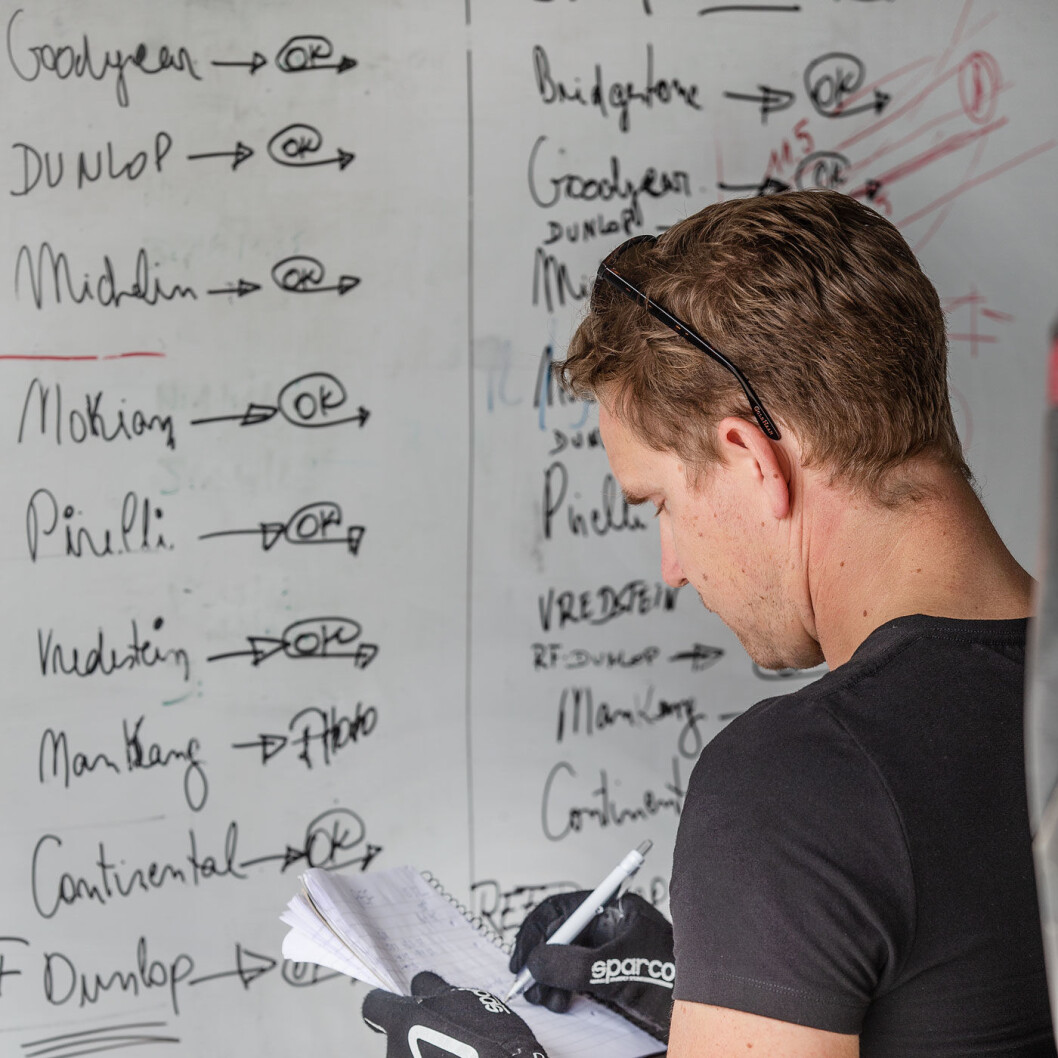 Goodyear → OK
DUNLOP → OK
Michelin → OK
Nokian → OK
Pirelli → OK
Vredestein → OK
Nankang → Photo
Continental → OK
F Dunlop →
Bridgestone → OK
115
Goodyear → OK
DUNLOP
Mi
DUN
Pirelli
VREDSTEIN
RF-DUNLOP →
Nankang
Continent
sparco